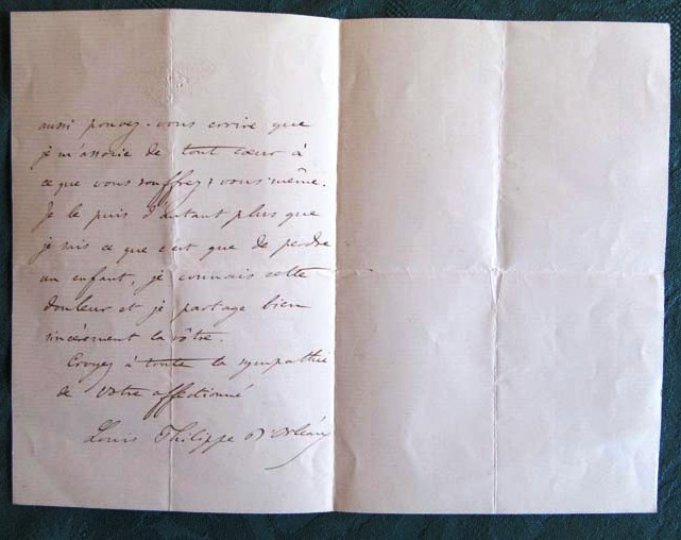 aussi pouvez-vous croire que
je m'associe de tout cœur à
ce que vous souffrez vous-même.
Je le puis d'autant plus que
je sais ce que c'est que de perdre
un enfant, je connais cette
douleur et je partage bien
sincèrement la vôtre.
Croyez à toute la sympathie
de Votre affectionné
Louis Philippe D'Orléans